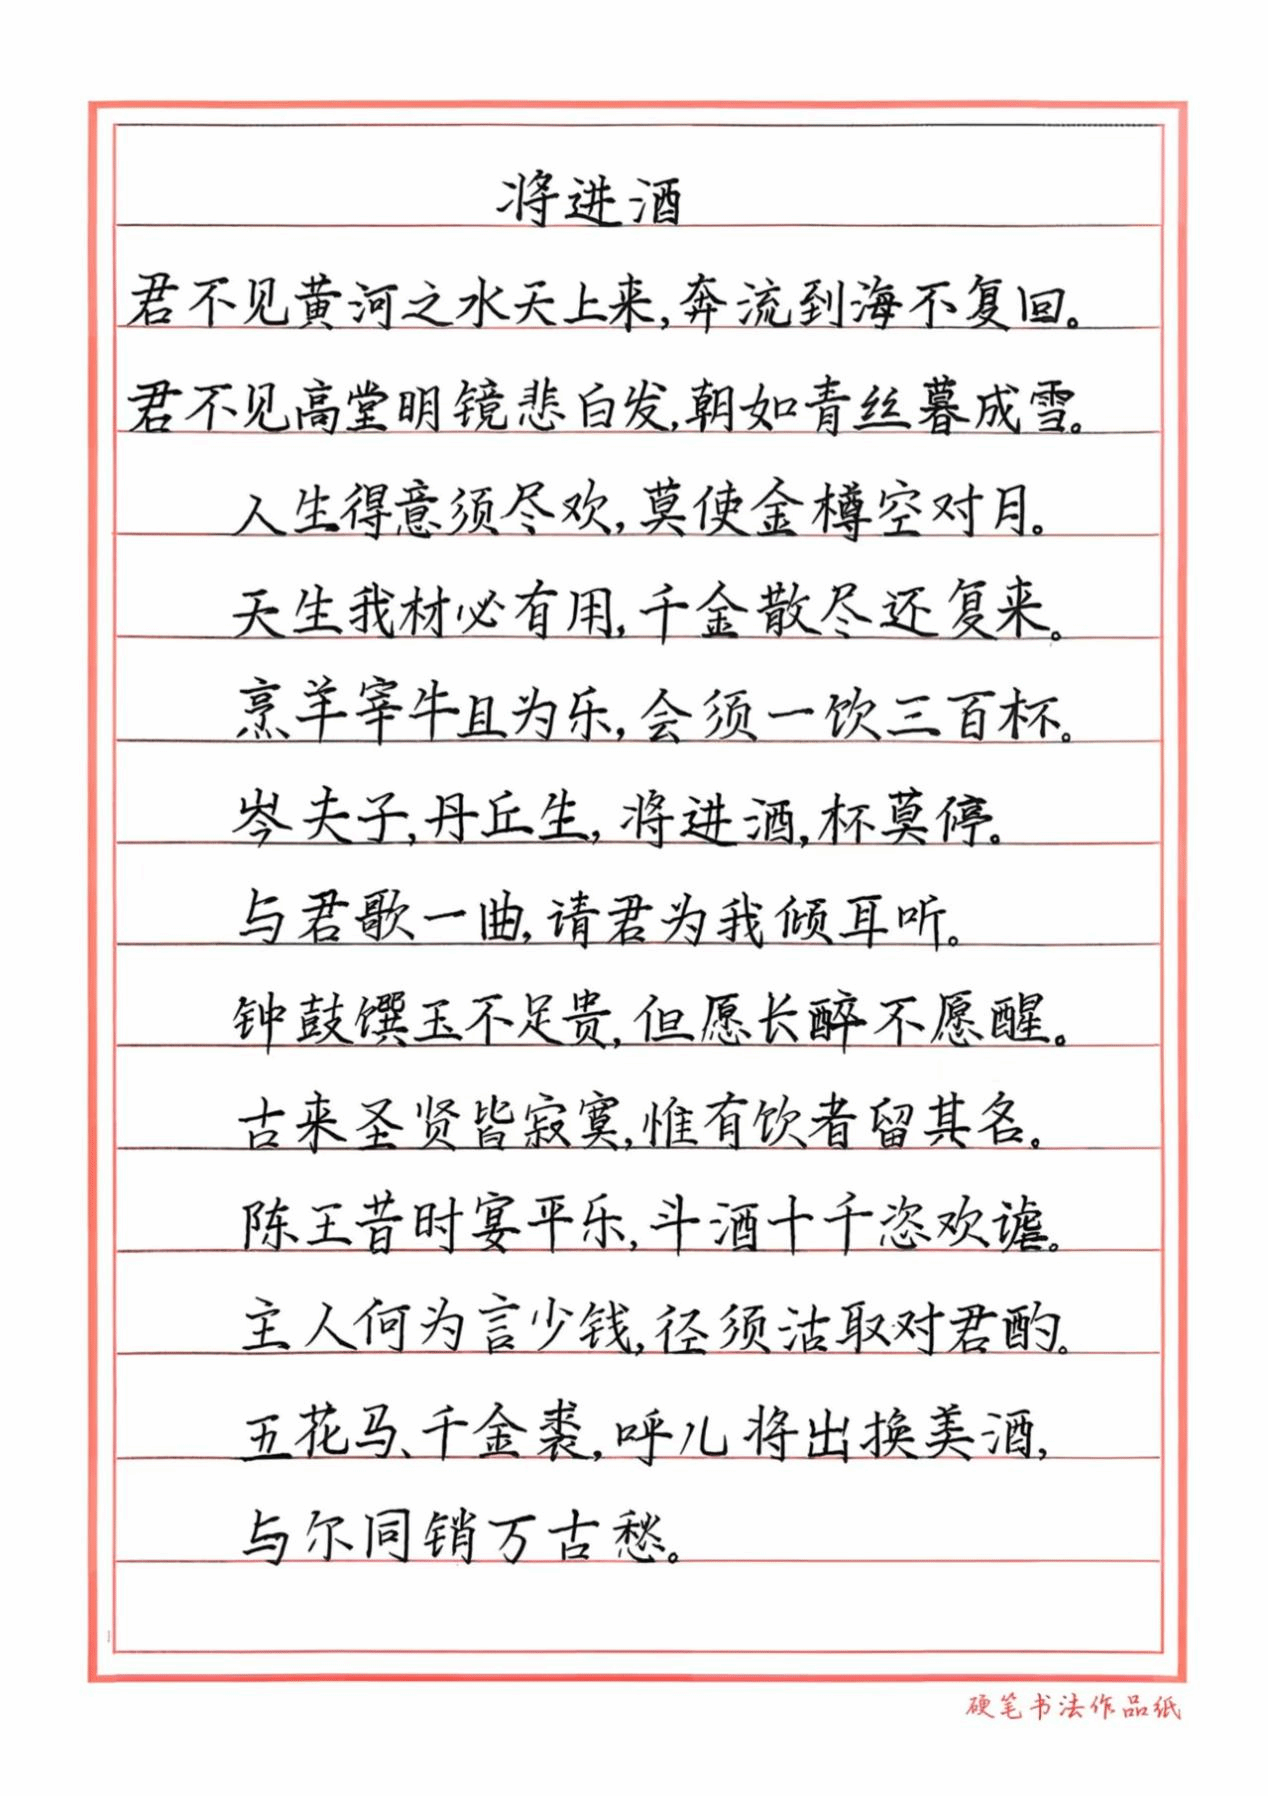 将进酒
君不见黄河之水天上来,奔流到海不复回。
君不见高堂明镜悲白发,朝如青丝暮成雪。
人生得意须尽欢,莫使金樽空对月。
天生我材必有用,千金散尽还复来。
烹羊宰牛且为乐,会须一饮三百杯。
岑夫子,丹丘生,将进酒,杯莫停。
与君歌一曲,请君为我倾耳听。
钟鼓馔玉不足贵,但愿长醉不愿醒。
古来圣贤皆寂寞,惟有饮者留其名。
陈王昔时宴平乐,斗酒十千恣欢谑。
主人何为言少钱,径须沽取对君酌。
五花马、千金裘,呼儿将出换美酒,
与尔同销万古愁。
硬笔书法作品纸